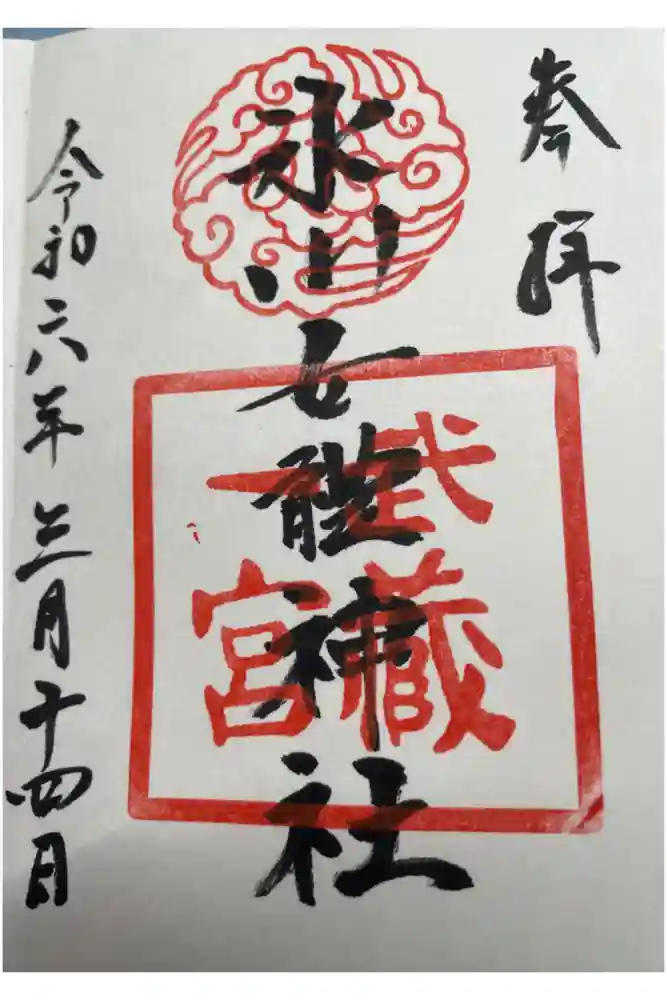 奉拝
氷川女體神社
武蔵
一宮
令和六年三月十四日